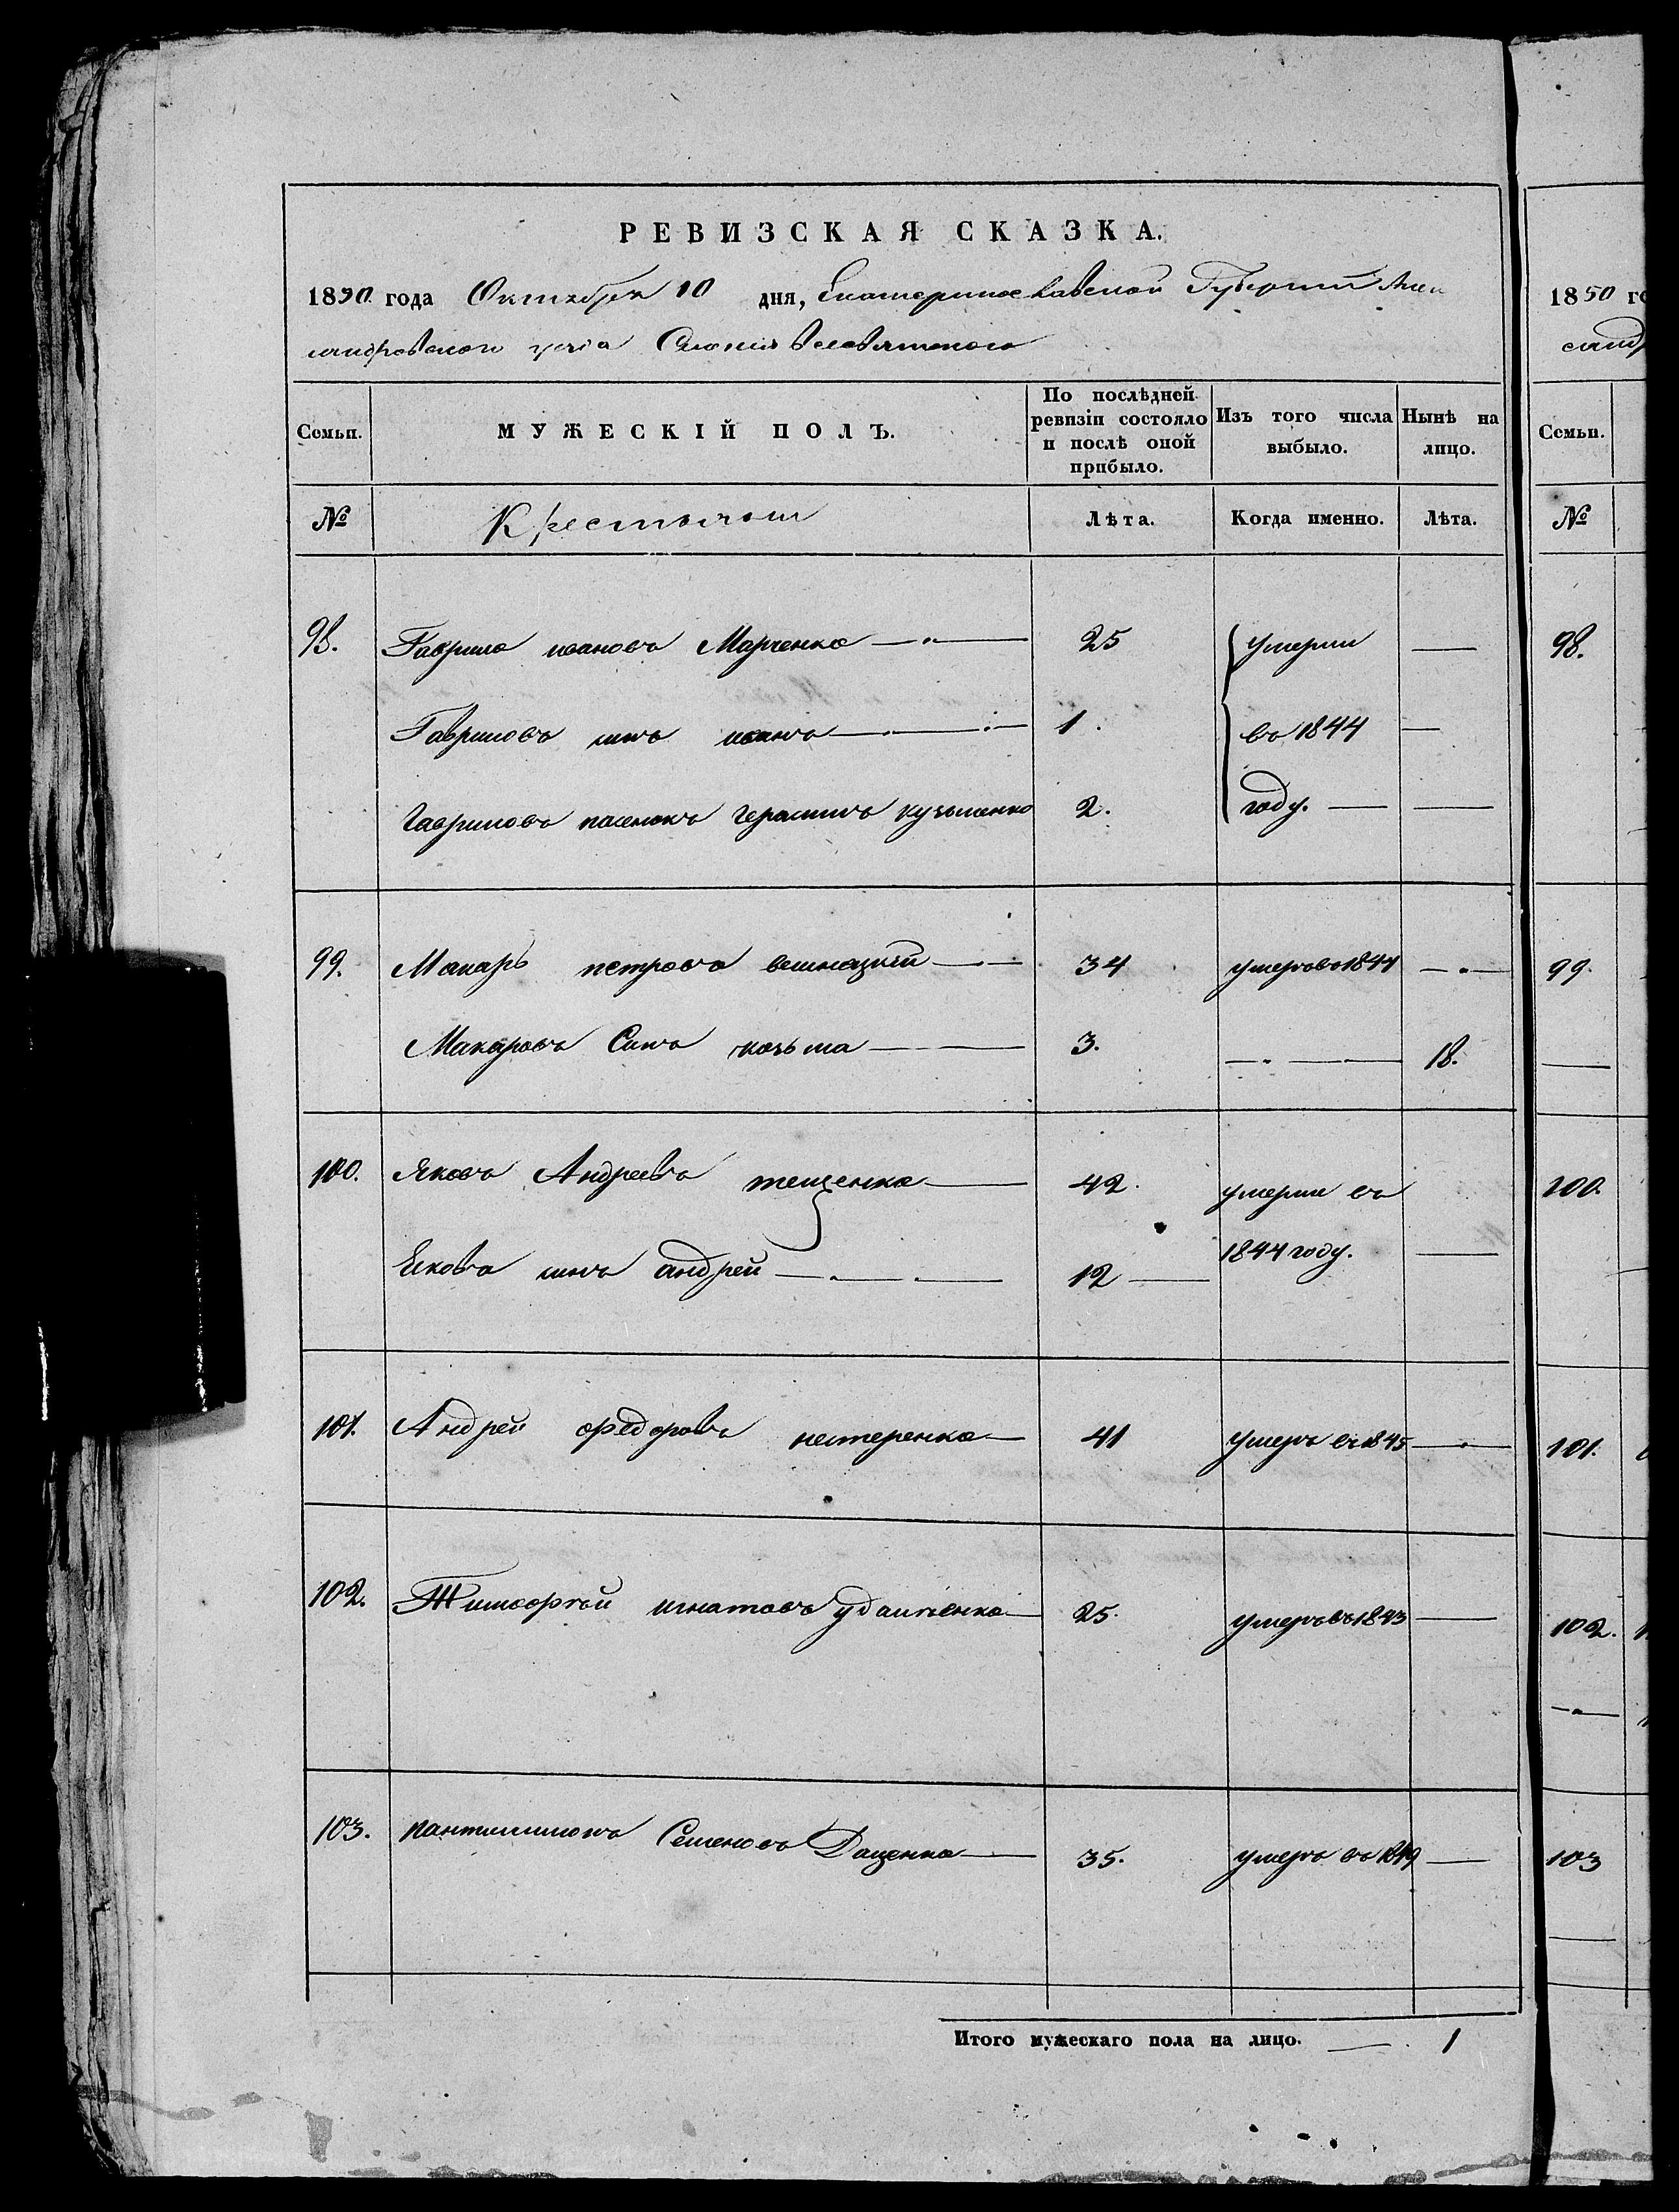 РЕВИЗСКАЯ СКАЗКА.
1850 года Октября 10 дня, Екатеринославской Губернии Алек
сандровского уезда Селения всесвятского
Семьи. МУЖЕСКІЙ ПОЛЪ. По послѣдней ревизіи состояло и послѣ оной прибыло. Изъ того числа выбыло. Нынѣ на лицо.
№ Крестьяни Лѣта. Когда именно. Лѣта.
98. Гаврило ивановъ Марченко 25 умерли —
Гавриловъ сынъ иванъ 1. въ 1844 —
Гавриловъ пасенокъ герасимъ кузьменко 2. году. —
99. Макаръ петровъ 34 умеръ въ 1844 —
Макаровъ Сынъ козьма 3. — 18.
100. Яковъ Андреевъ тещенко 42. умерли въ
Яковъ сынъ андрей 12 — 1844 году. —
101. Андрей федоровъ нестеренко 41 умеръ въ 1845 —
102. Тимофтей игнатовъ 25. умеръ въ 1843 —
103. пантилимонъ Семеновъ Даценко 35. умеръ въ 1849 —
Итого мужескаго пола на лицо. — 1
1850 го
санд
Семьи.
№
98.
99.
100.
101.
102.
103